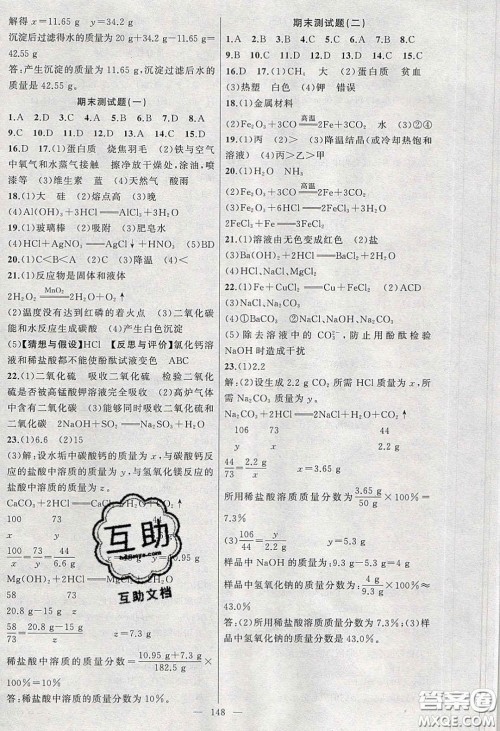 解得 x=11.65 g　y=34.2 g
沉淀后过滤得水的质量为 20 g+34.2 g-11.65 g=
42.55 g
答:产生沉淀的质量为 11.65 g,沉淀过滤后水的质
量是 42.55 g。
期末测试题(一)
1.A　2.D　3.A　4.B　5.A　6.D　7.D　8.A
9.C　10.D　11.B　12.D　13.C　14.C　15.D
16.D　17.(1)蛋白质　烧焦羽毛　(2)铁与空气
中氧气和水蒸气接触　擦净放干燥处,涂油,喷
漆等　(3)维生素　蓝　(4)天然气　酸雨
18.(1)大　硅　(2)熔点高　(3)晚
(4)Al(OH)₃+3HCl══AlCl₃+3H₂O
19.(1)玻璃棒　(2)吸附　(3)肥皂水
(4)HCl+AgNO₃══AgCl↓+HNO₃　(5)BD
20.(1)C　(2)C　(3)降温　(4)C
21.(1)反应物是固体和液体
2H₂O₂ MnO₂══ 2H₂O+O₂↑
(2)温度没有达到红磷的着火点　(3)二氧化碳
能和水反应生成碳酸　(4)产生白色沉淀
(5)【猜想与假设】HCl　【反思与评价】氯化钙溶
液和稀盐酸都不能使酚酞试液变色　ABC
22.(1)二氧化碳　吸收二氧化硫　检验二氧化
硫是否被高锰酸钾溶液吸收　(2)高炉气体中
含有二氧化碳　(3)能够同时吸收二氧化硫和二
氧化碳　2NaOH+SO₂══Na₂SO₃+H₂O
23.(1)6.6　(2)15
(3)解:设水垢中碳酸钙的质量为 x,与碳酸钙反
应的稀盐酸中溶质的质量为 y,与氢氧化镁反应的
盐酸中溶质的质量为 z。
CaCO₃+2HCl══
100　73
x　y
100/x=73/y=44/6.6 g
Mg(OH)₂+2HCl══
58　73
20.8 g-15 g　z
58/(20.8 g-15 g)=73/z　z=7.3 g
稀盐酸中溶质的质量分数为 (10.95 g+7.3 g)/182.5 g ×
100%=10%
答:稀盐酸中溶质的质量分数为 10%。
期末测试题(二)
9.B　10.B　11.B　12.C　13.D　14.C　15.C
16.D　17.(1)CH₄　大　(2)蛋白质　贫血
(3)热塑　(4)白磷　(5)钾　错误
18.(1)金属材料
(2)Fe₂O₃+3CO 高温══ 2Fe+3CO₂　水　(3)②④
19.(1)丙　(2)B　(3)降温结晶(或冷却热饱和
溶液)　(4)丙>乙>甲
20.(1)H₂O　NH₃
(2)Fe₂O₃+3CO 高温══ 2Fe+3CO₂
21.(1)溶液由无色变成红色　(2)盐
(3)Ba(OH)₂+2HCl══BaCl₂+2H₂O
(4)HCl、NaCl、MgCl₂
22.(1)Fe+CuCl₂══Cu+FeCl₂
(2)NaCl　(3)NaOH
(4)①BaCO₃　②NaCl、BaCl₂
(5)除去溶液中的 CO₃²⁻,防止用酚酞检验
NaOH 时造成干扰
23.(1)2.2
解:(2)设生成 2.2 g CO₂ 所需 HCl 质量为 x,所
需 Na₂CO₃ 质量为 y。
Na₂CO₃+2HCl══2NaCl+H₂O+CO₂↑
44/73=2.2 g/x　x=3.65 g
所用稀盐酸溶质质量分数为 3.65/50 g ×100%=
7.3%
(3)106/44=y/2.2 g　y=5.3 g
样品中 NaOH 的质量为:9.3 g-5.3 g=4 g
样品中氢氧化钠的质量分数为:4 g/9.3 g ×100%≈
43.0%
答:(2)所用稀盐酸溶质质量分数 7.3%;(3)样
品中氢氧化钠的质量分数是 43.0%。
148
互助
互助文档
答案圈
MXQE.COM